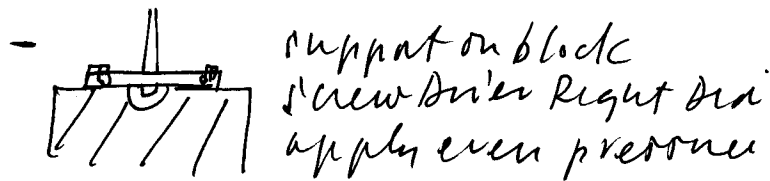 - support on block
screw Driver Right
apply even pressure